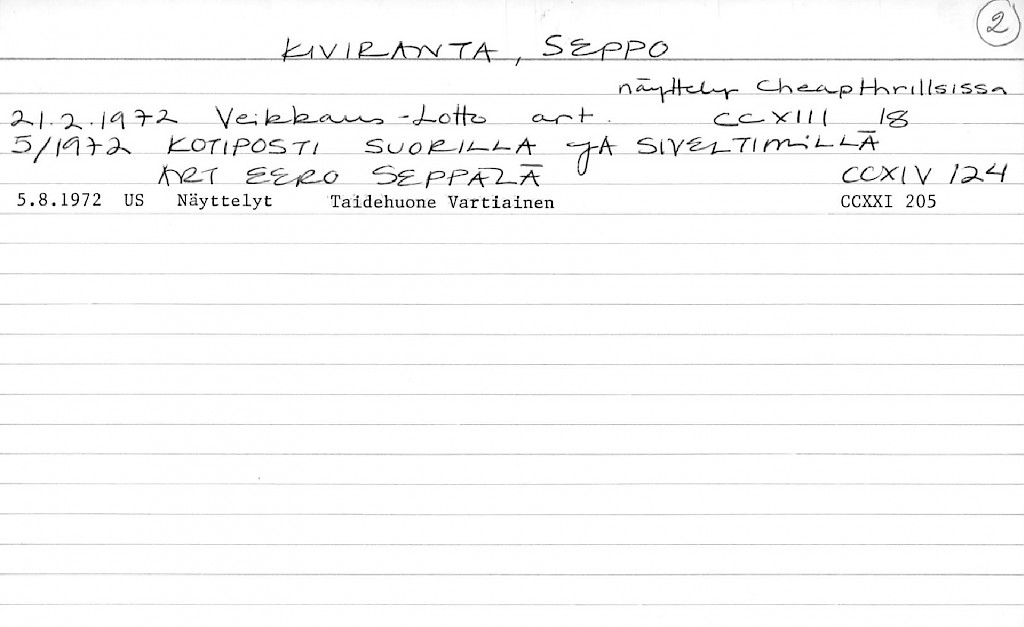 2
KIVIRANTA, SEPPO
näyttely Cheap thrillsissa
21.2.1972 Veikkaus-Lotto art. CCXIII 18
5/1972 KOTIPOSTI SUORILLA JA SIVELTIMILLÄ
ART EERO SEPPÄLÄ CCXIV 124
5.8.1972 US Näyttelyt Taidehuone Vartiainen CCXXI 205